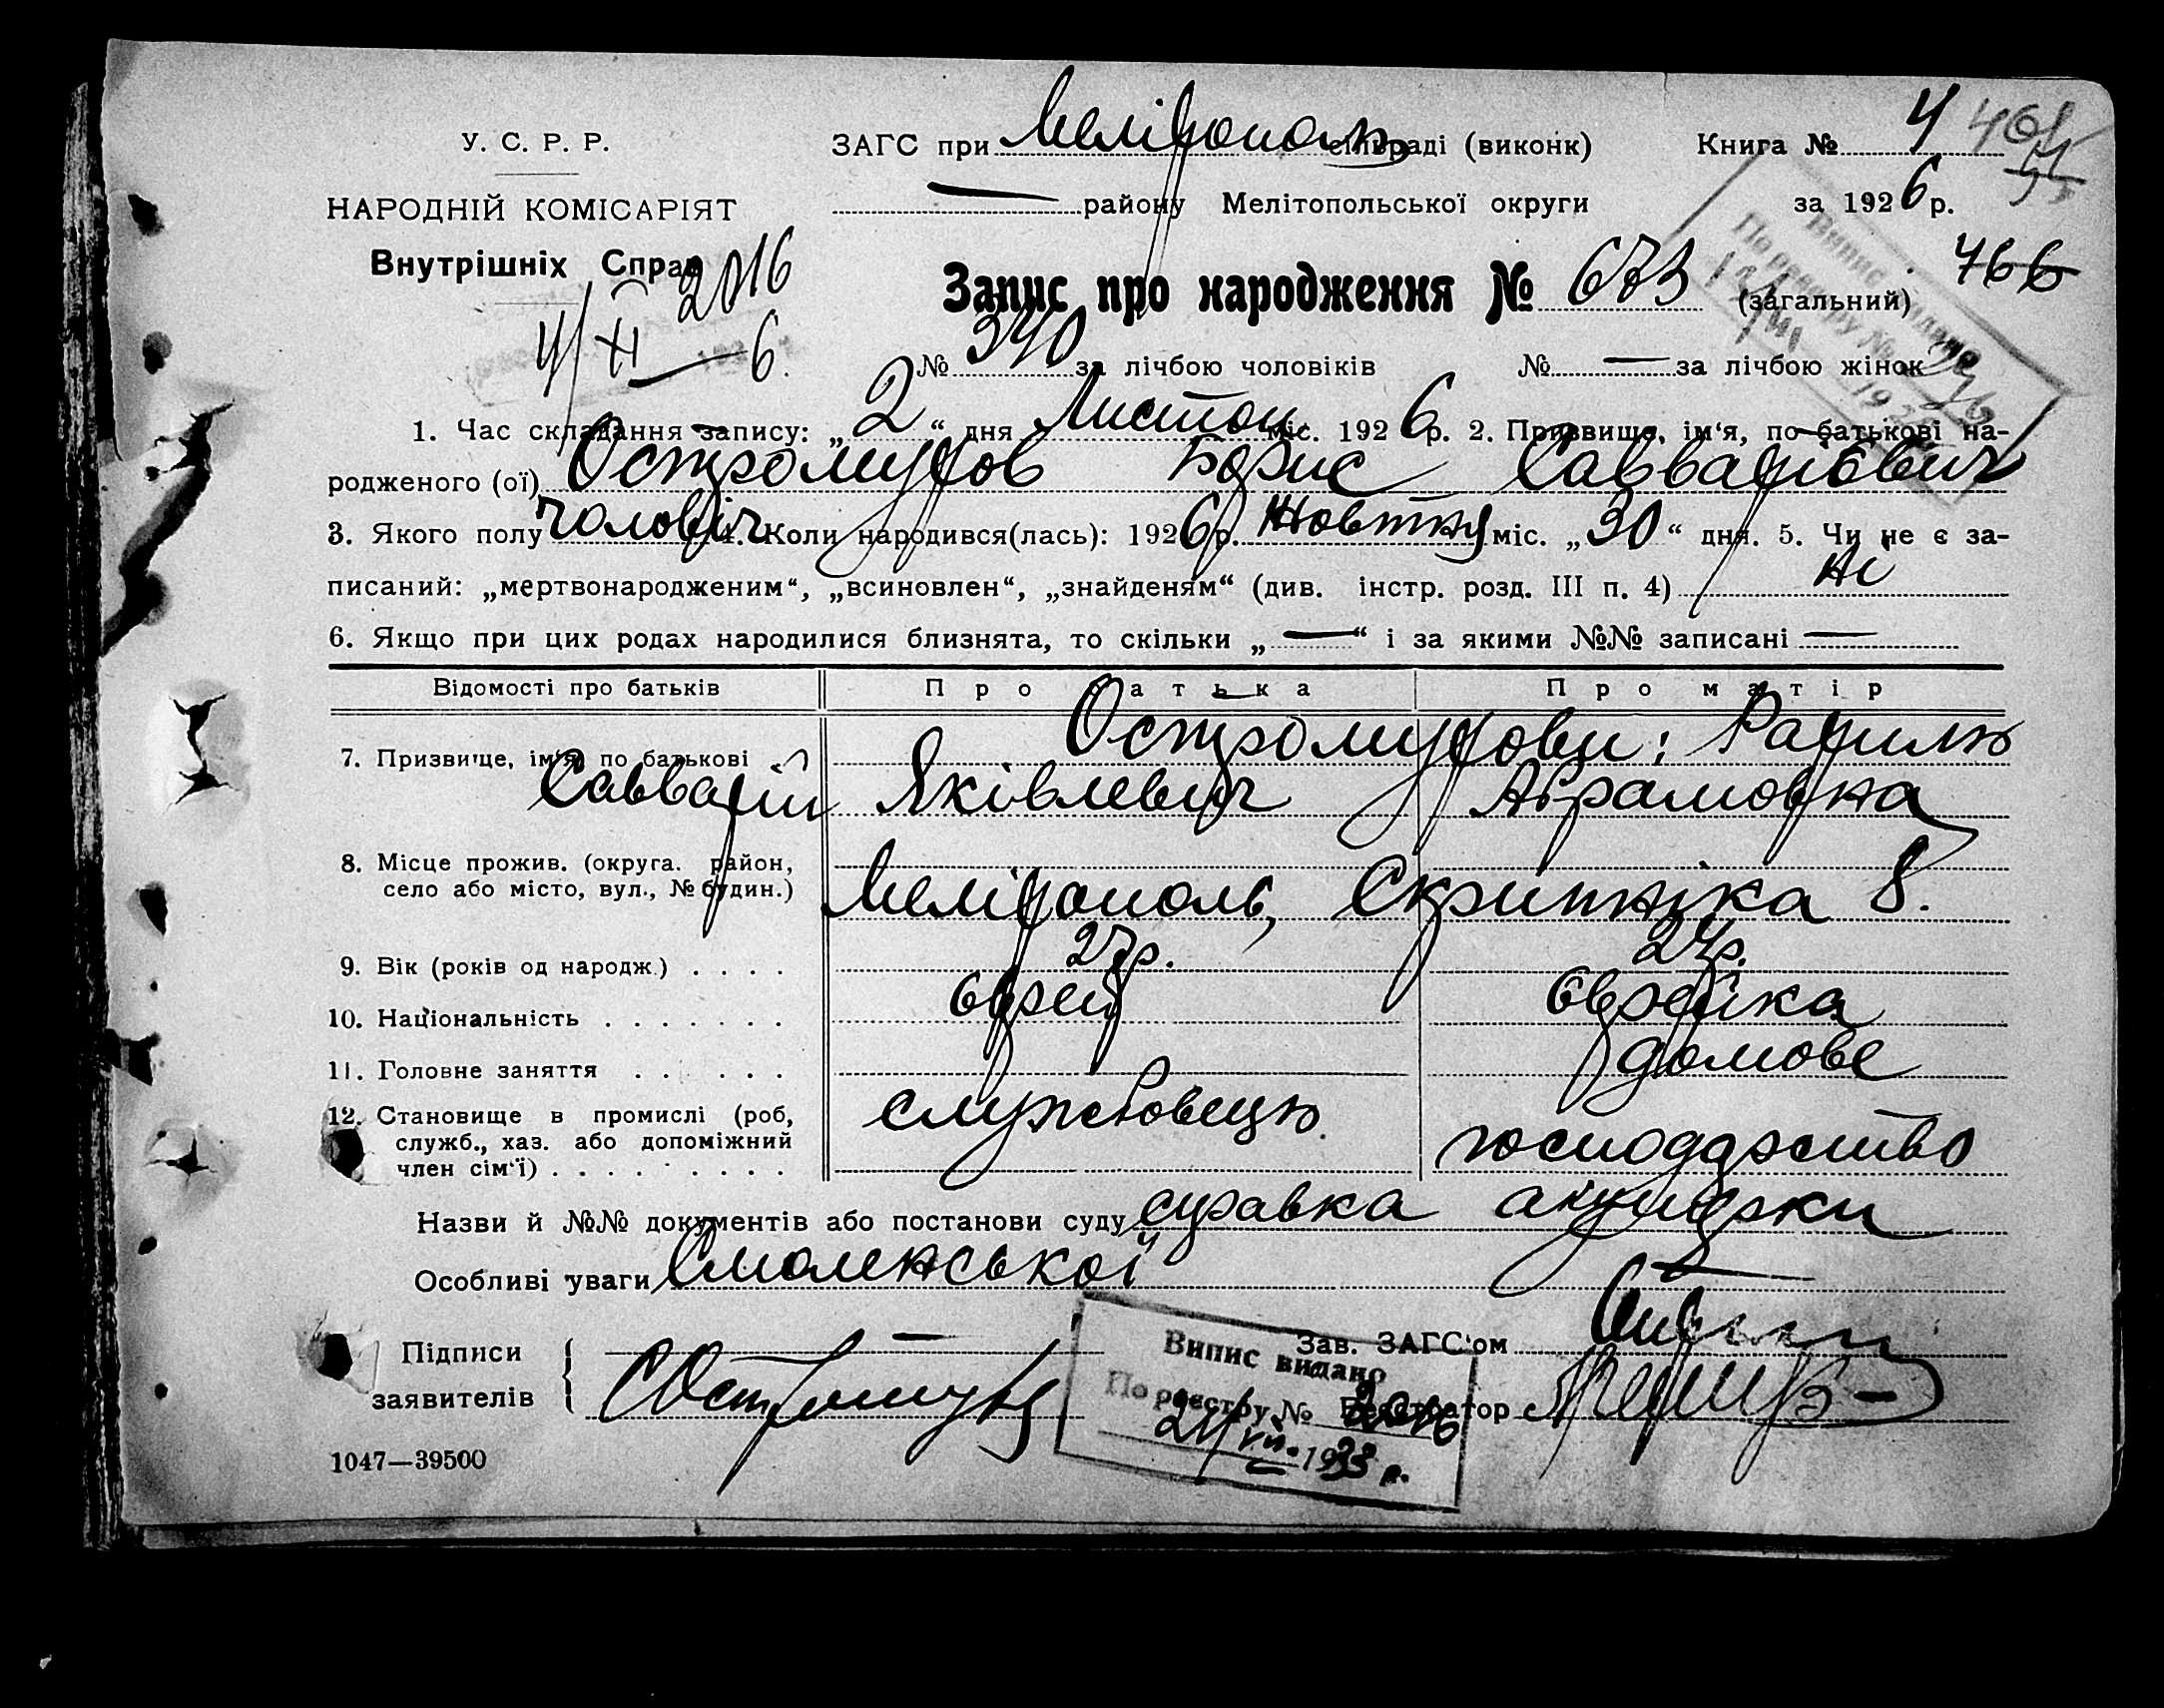 У. С. Р. Р.
НАРОДНІЙ КОМІСАРІЯТ
Внутрішніх Справ
2016
4/XI—6.
ЗАГС при Мелітополь сільраді (виконк)
— району Мелітопольської округи
Книга № 4
за 1926 р.
466
Запис про народження № 673 (загальний)
№ 340 за лічбою чоловіків № — за лічбою жінок
1. Час складання запису: „2“ дня Листоп. міс. 1926 р. 2. Призвище, ім‘я, по-батькові на-
родженого (ої) Остромухов Борис Савватієвич
3. Якого полу чоловіч 4. Коли народився(лась): 1926 р. Жовтня міс. „30“ дня. 5. Чи не є за-
писаний: „мертвонародженим“, „всиновлен“, „знайденям“ (див. інстр. розд. III п. 4) Ні
6. Якщо при цих родах народилися близнята, то скільки „—“ і за якими №№ записані —
Відомості про батьків Про батька Про матір
7. Призвище, ім‘я, по батькові Остромухови: Рахиль
Савватій Яківлевич Абрамовна
8. Місце прожив. (округа. район,
село або місто, вул., № будин.) Мелітополь, Скрипніка 8.
9. Вік (років од народж.) . . . . 27 р. 24 р.
10. Національність . . . . . . . єврей єврейка
11. Головне заняття . . . . . . домове
12. Становище в промислі (роб,
служб., хаз. або допоміжний
член сім‘ї) . . . . . . . . . службовець господарство
Назви й №№ документів або постанови суду справка акушерки
Особливі уваги Смоленської
Підписи
заявителів
Зав. ЗАГС‘ом
Реєстратор
Випис видано
По реєстру №
24/VII. 1933 р.
Випис видано
По реєстру №
1047—39500